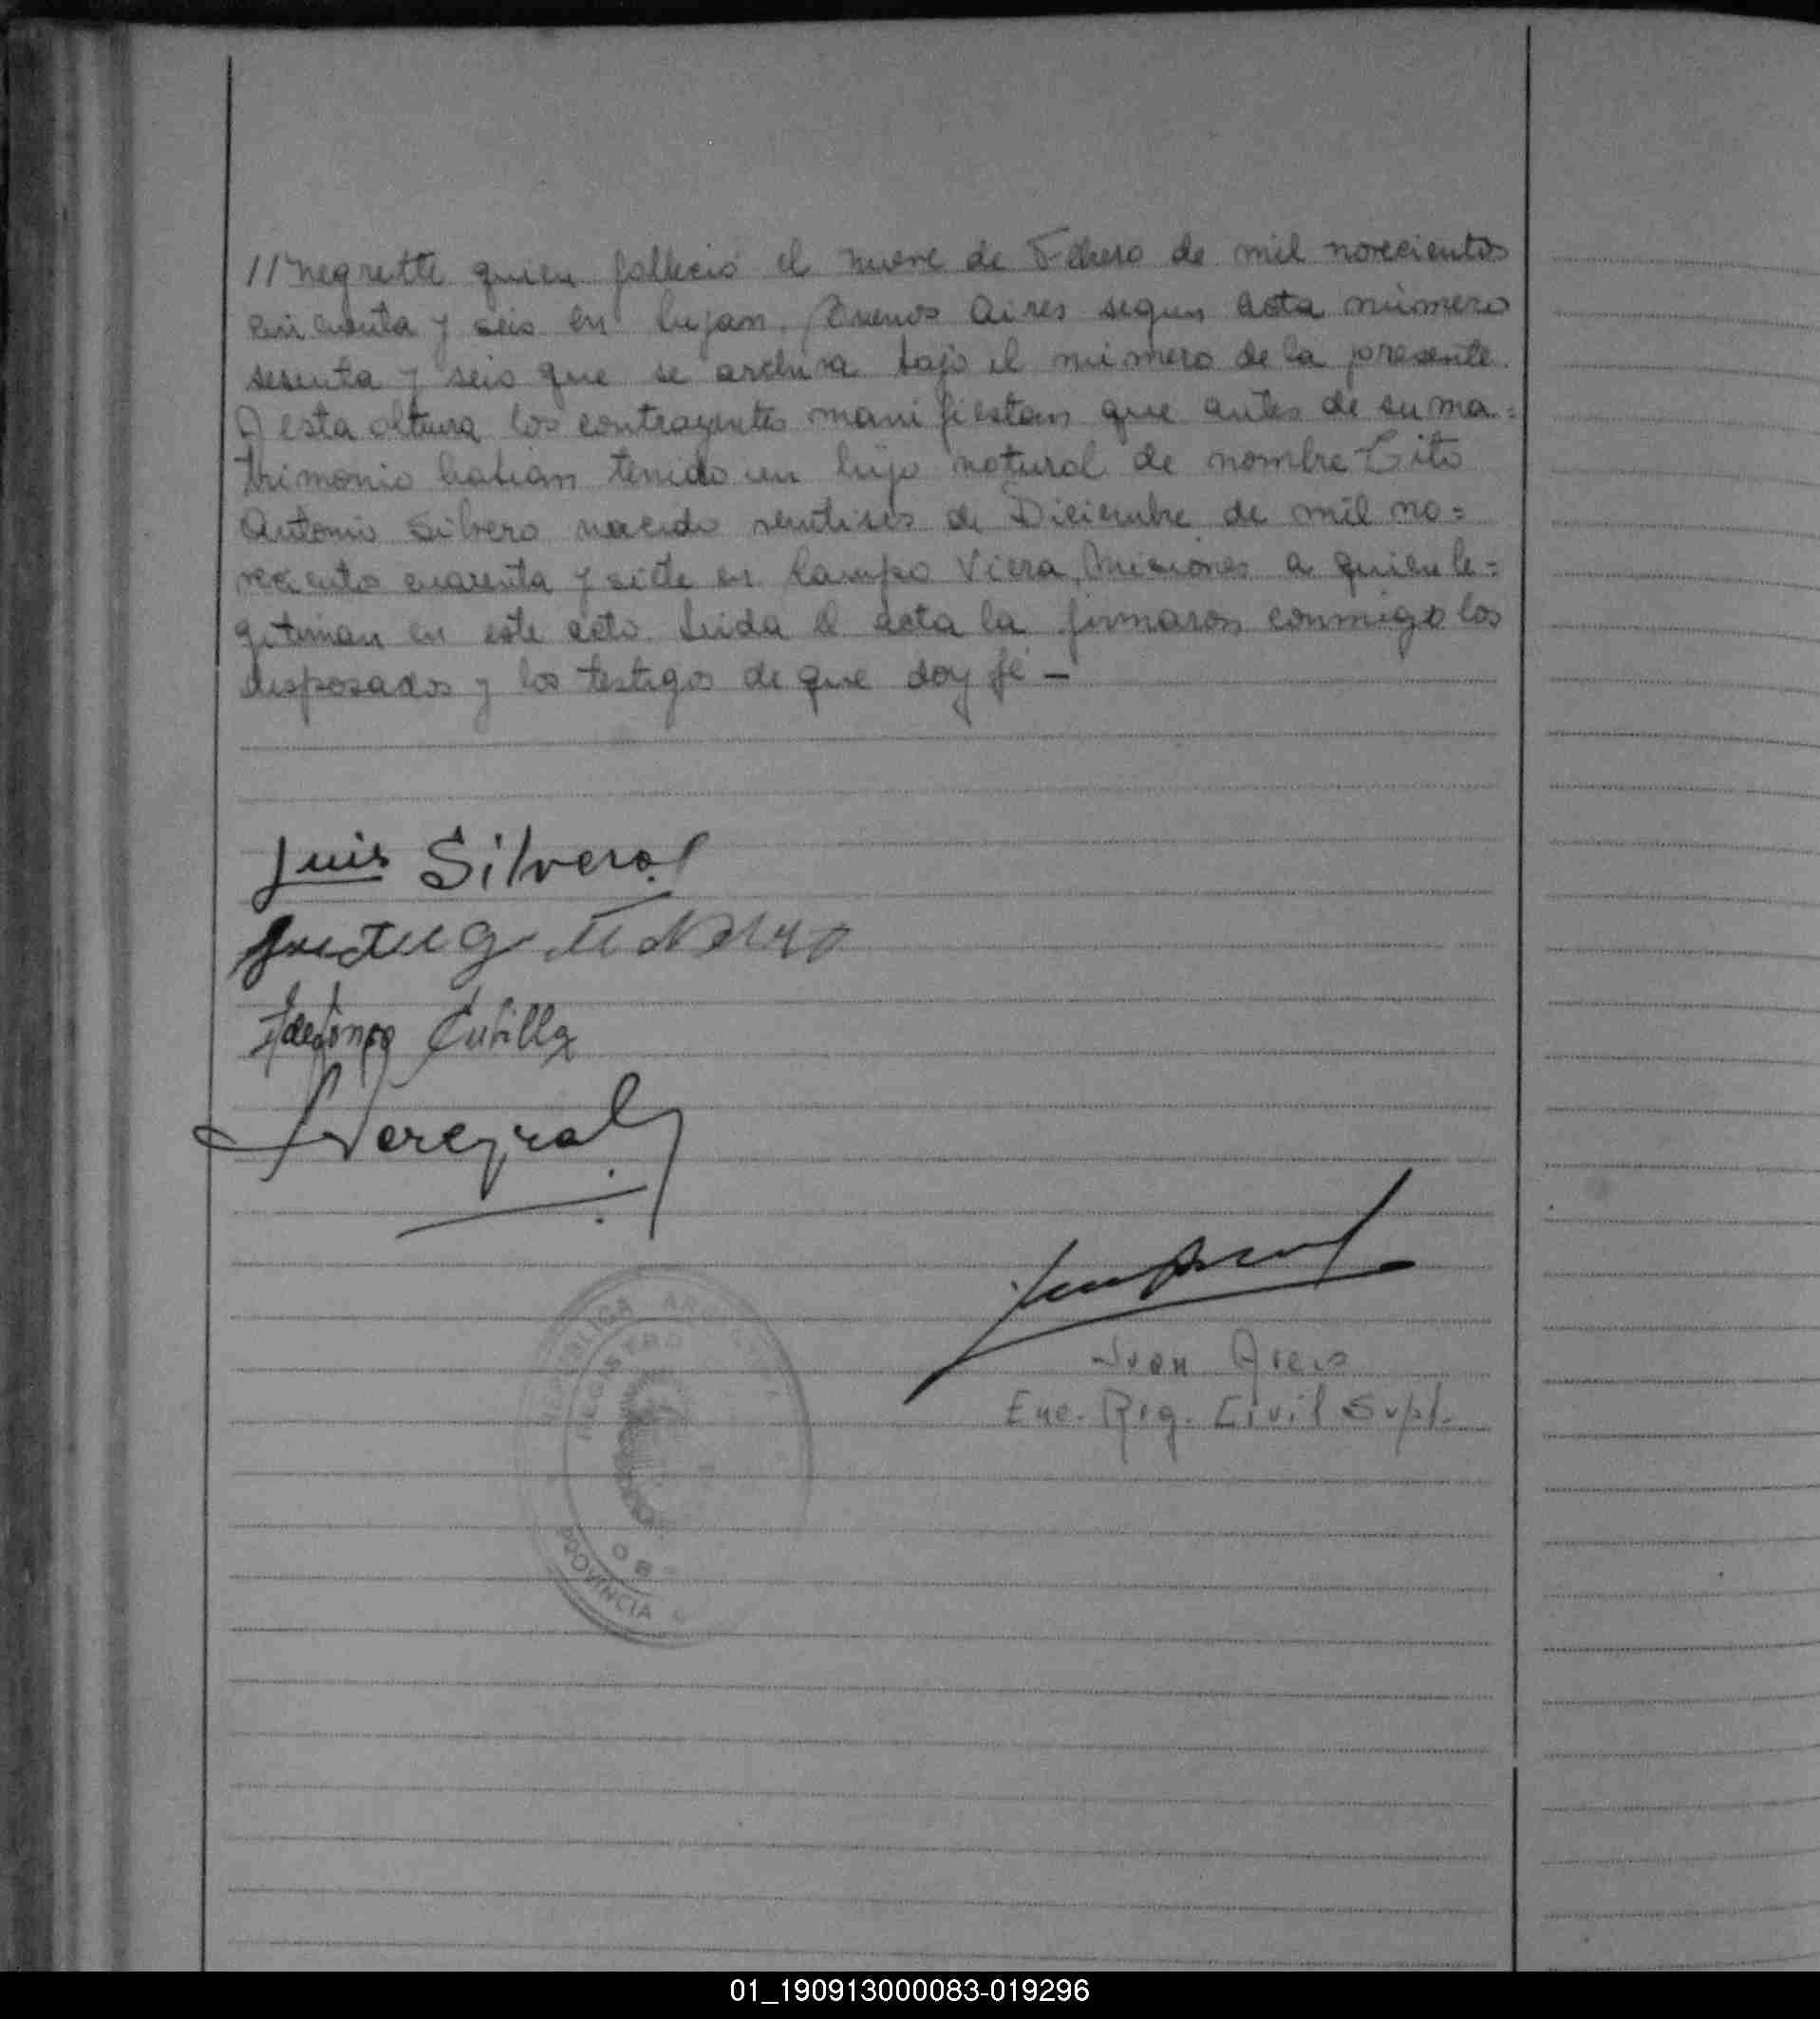 //Negrette quien falleció el nueve de Febrero de mil novecientos
cincuenta y seis en Lujan. Buenos Aires segun acta número
sesenta y seis que se archiva bajo el número de la presente.
A esta altura los contrayentes manifiestan que antes de su ma=
trimonio habian tenido un hijo natural de nombre Tito
Antonio Silvero nacido veintiseis de Diciembre de mil no=
veciento cuarenta y siete en Campo Viera, Misiones a quien le=
gitiman en este acto. Leida el acta la firmaron conmigo los
desposados y los testigos de que doy fé —
Luis Silvero
Ildefonso Cubilla
Pereyra
Juan
Enc. Reg. Civil Supl.
REPUBLICA ARGENTINA
REGISTRO
PROVINCIA
01_190913000083-019296